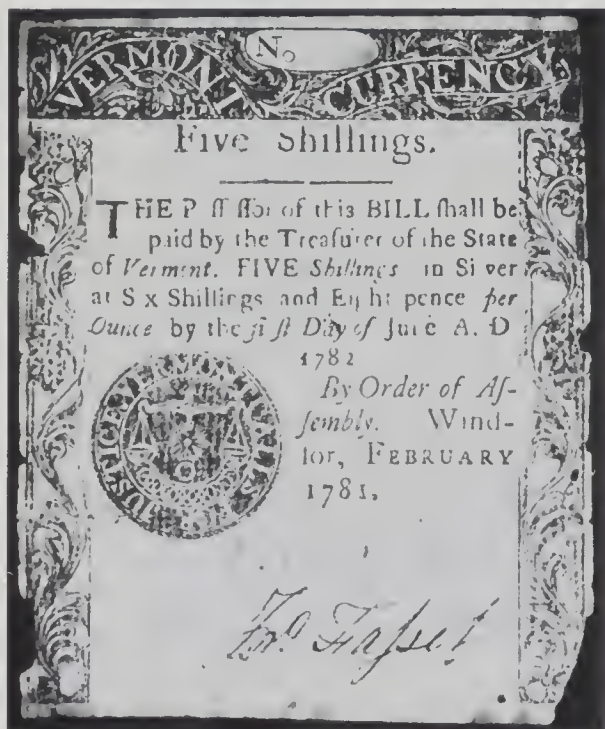 No
VERMONT CURRENCY.
Five Shillings.
THE P ſſ ſſor of this BILL ſhall be
paid by the Treaſurer of the State
of Vermont, FIVE Shillings in Si ver
at S x Shillings and Eight pence per
Ounce by the fi ſt Day of June A. D
1782
By Order of Aſ-
ſembly. Wind-
ſor, FEBRUARY
1781.
VERMONT JUSTICE
Jno Faſset